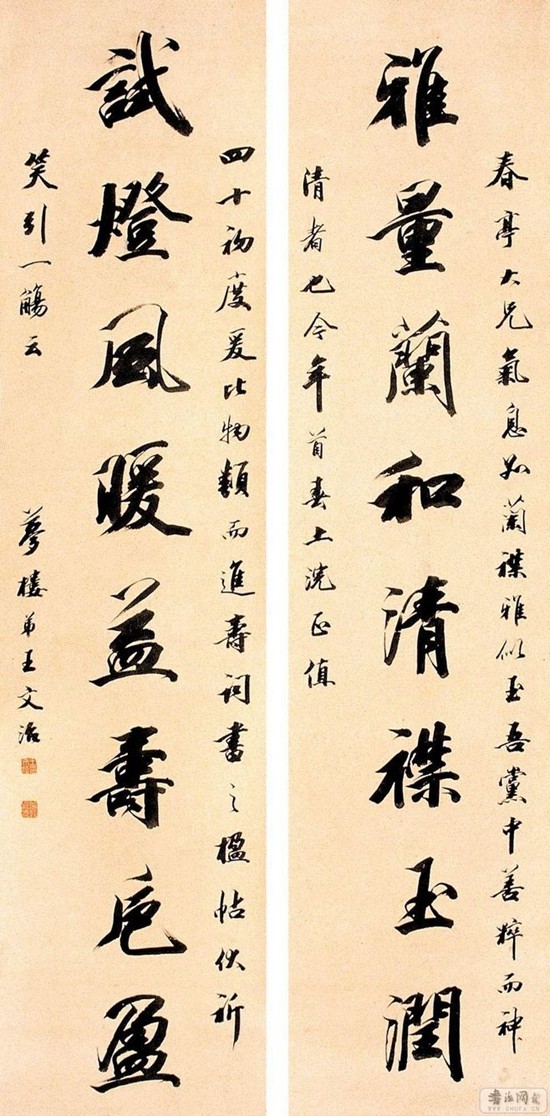 春亭大兄氣息如蘭襟雅似玉吾黨中善粹而神
雅量蘭和清襟玉潤
清者也今年首春上浣正值
四十初度爰比物類而進壽詞書之楹帖伏祈
試燈風暖益壽卮盈
笑引一觴云
夢樓弟王文治
書法网
WWW.SHUFA.CN